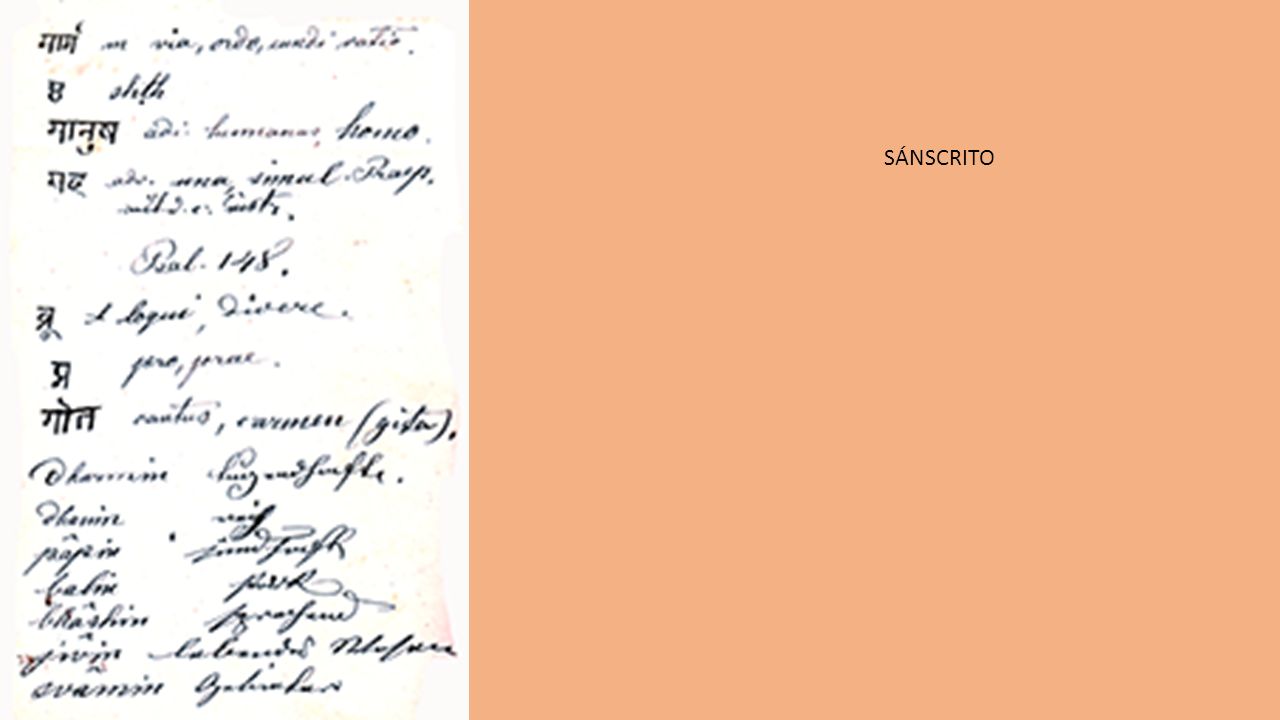 मार्ग m via, ordo, mundi ratio.
ष्ठ shth
मानुष adi. humanus, homo.
adv. una, simul.
Psal. 148.
ब्रू loqui, dicere.
प्र pro, prae.
गीत cantus, carmen (gîta).
dharmin tugendhafte.
dhanin reich
pâpin sündhaft
balin stark
bhâshin sprechend
jîvin lebendes Wesen
svâmin Gebieter
SÁNSCRITO